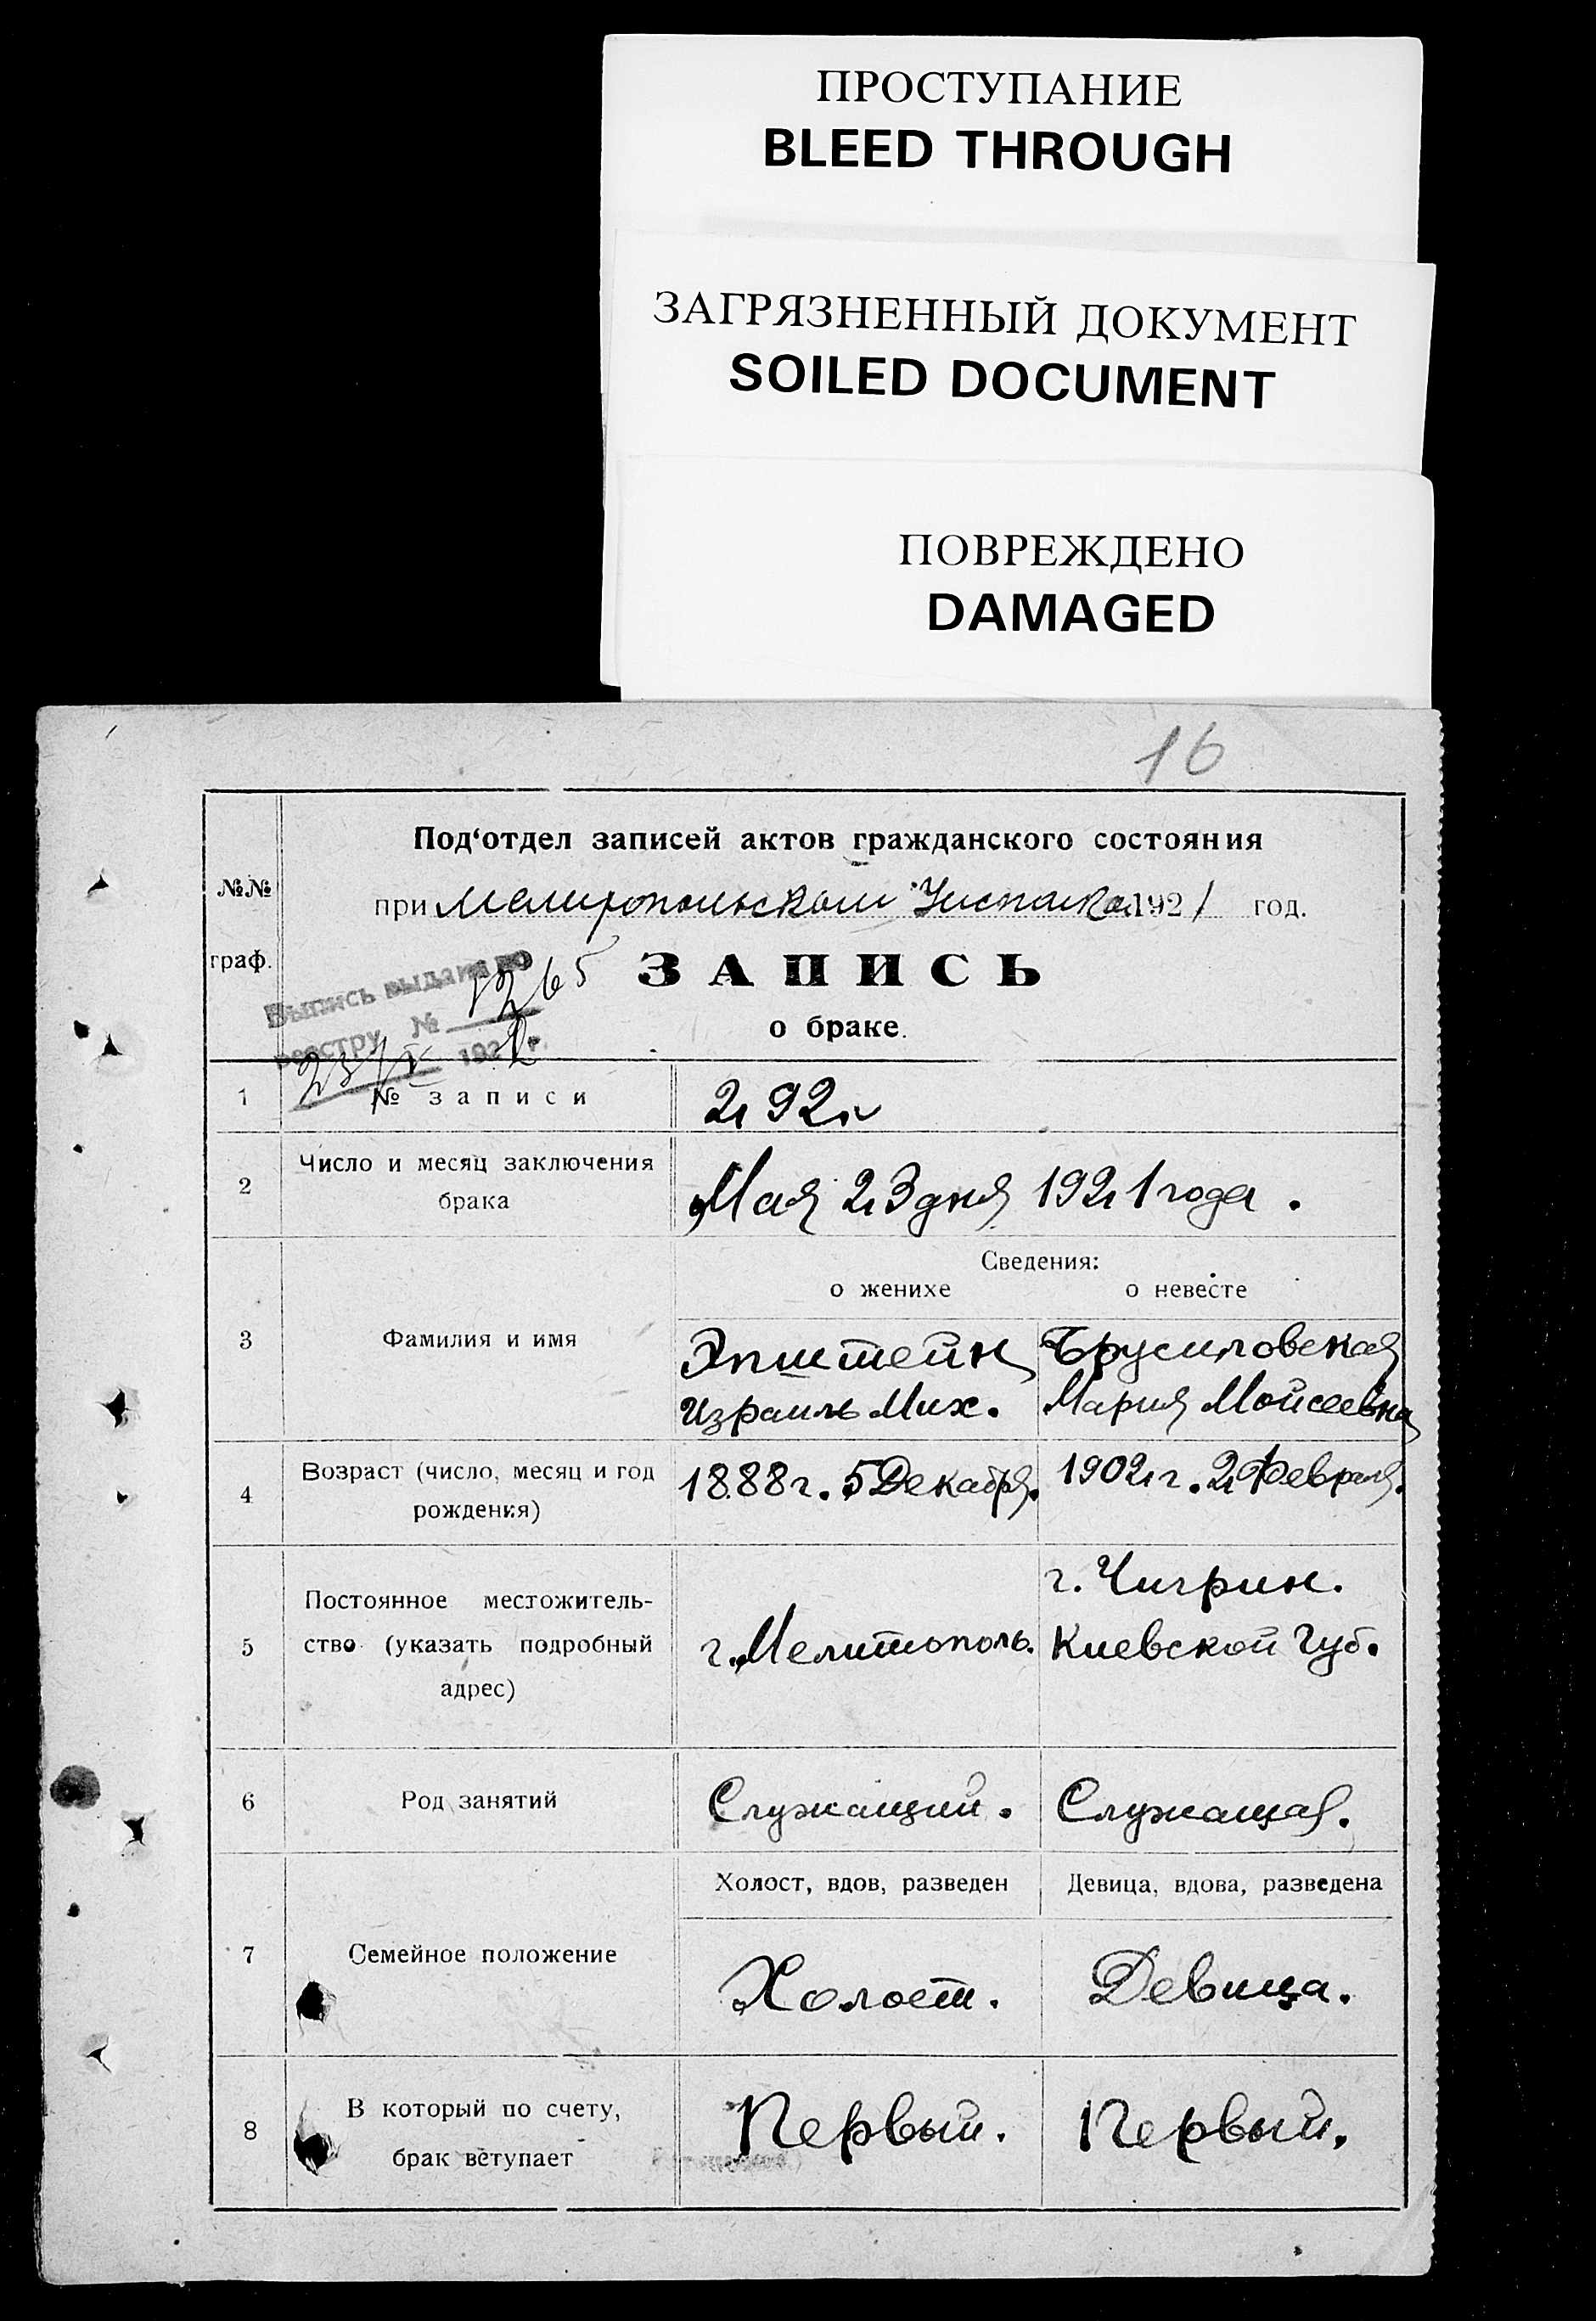 ПРОСТУПАНИЕ
BLEED THROUGH
ЗАГРЯЗНЕННЫЙ ДОКУМЕНТ
SOILED DOCUMENT
ПОВРЕЖДЕНО
DAMAGED
16
№№
граф.
Под‘отдел записей актов гражданского состояния
при Мелитопольском 1921 год.
Выпись выдана по
реестру №
192 г.
ЗАПИСЬ
о браке.
1 № записи 292
2 Число и месяц заключения
брака
Мая 23 дня 1921 года.
Сведения:
о женихе о невесте
3 Фамилия и имя
Эпштейн Брусиловская
Израиль Мих. Мария Моисеевна
4 Возраст (число, месяц и год
рождения)
1888 г. 5 Декабря. 1902 г. 2 Февраля.
5 Постоянное местожитель-
ство (указать подробный
адрес)
г. Мелитополь. г. Чигрин.
Киевской Губ.
6 Род занятий Служащий. Служащая.
Холост, вдов, разведен Девица, вдова, разведена
7 Семейное положение Холост. Девица.
8 В который по счету,
брак вступает
Первый. Первый.